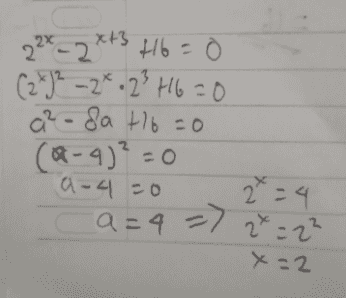 2^{2x} - 2^{x+3} + 16 = 0
(2^x)^2 - 2^x · 2^3 + 16 = 0
a^2 - 8a + 16 = 0
(a - 4)^2 = 0
a - 4 = 0
a = 4 => 2^x = 4
2^x = 2^2
x = 2